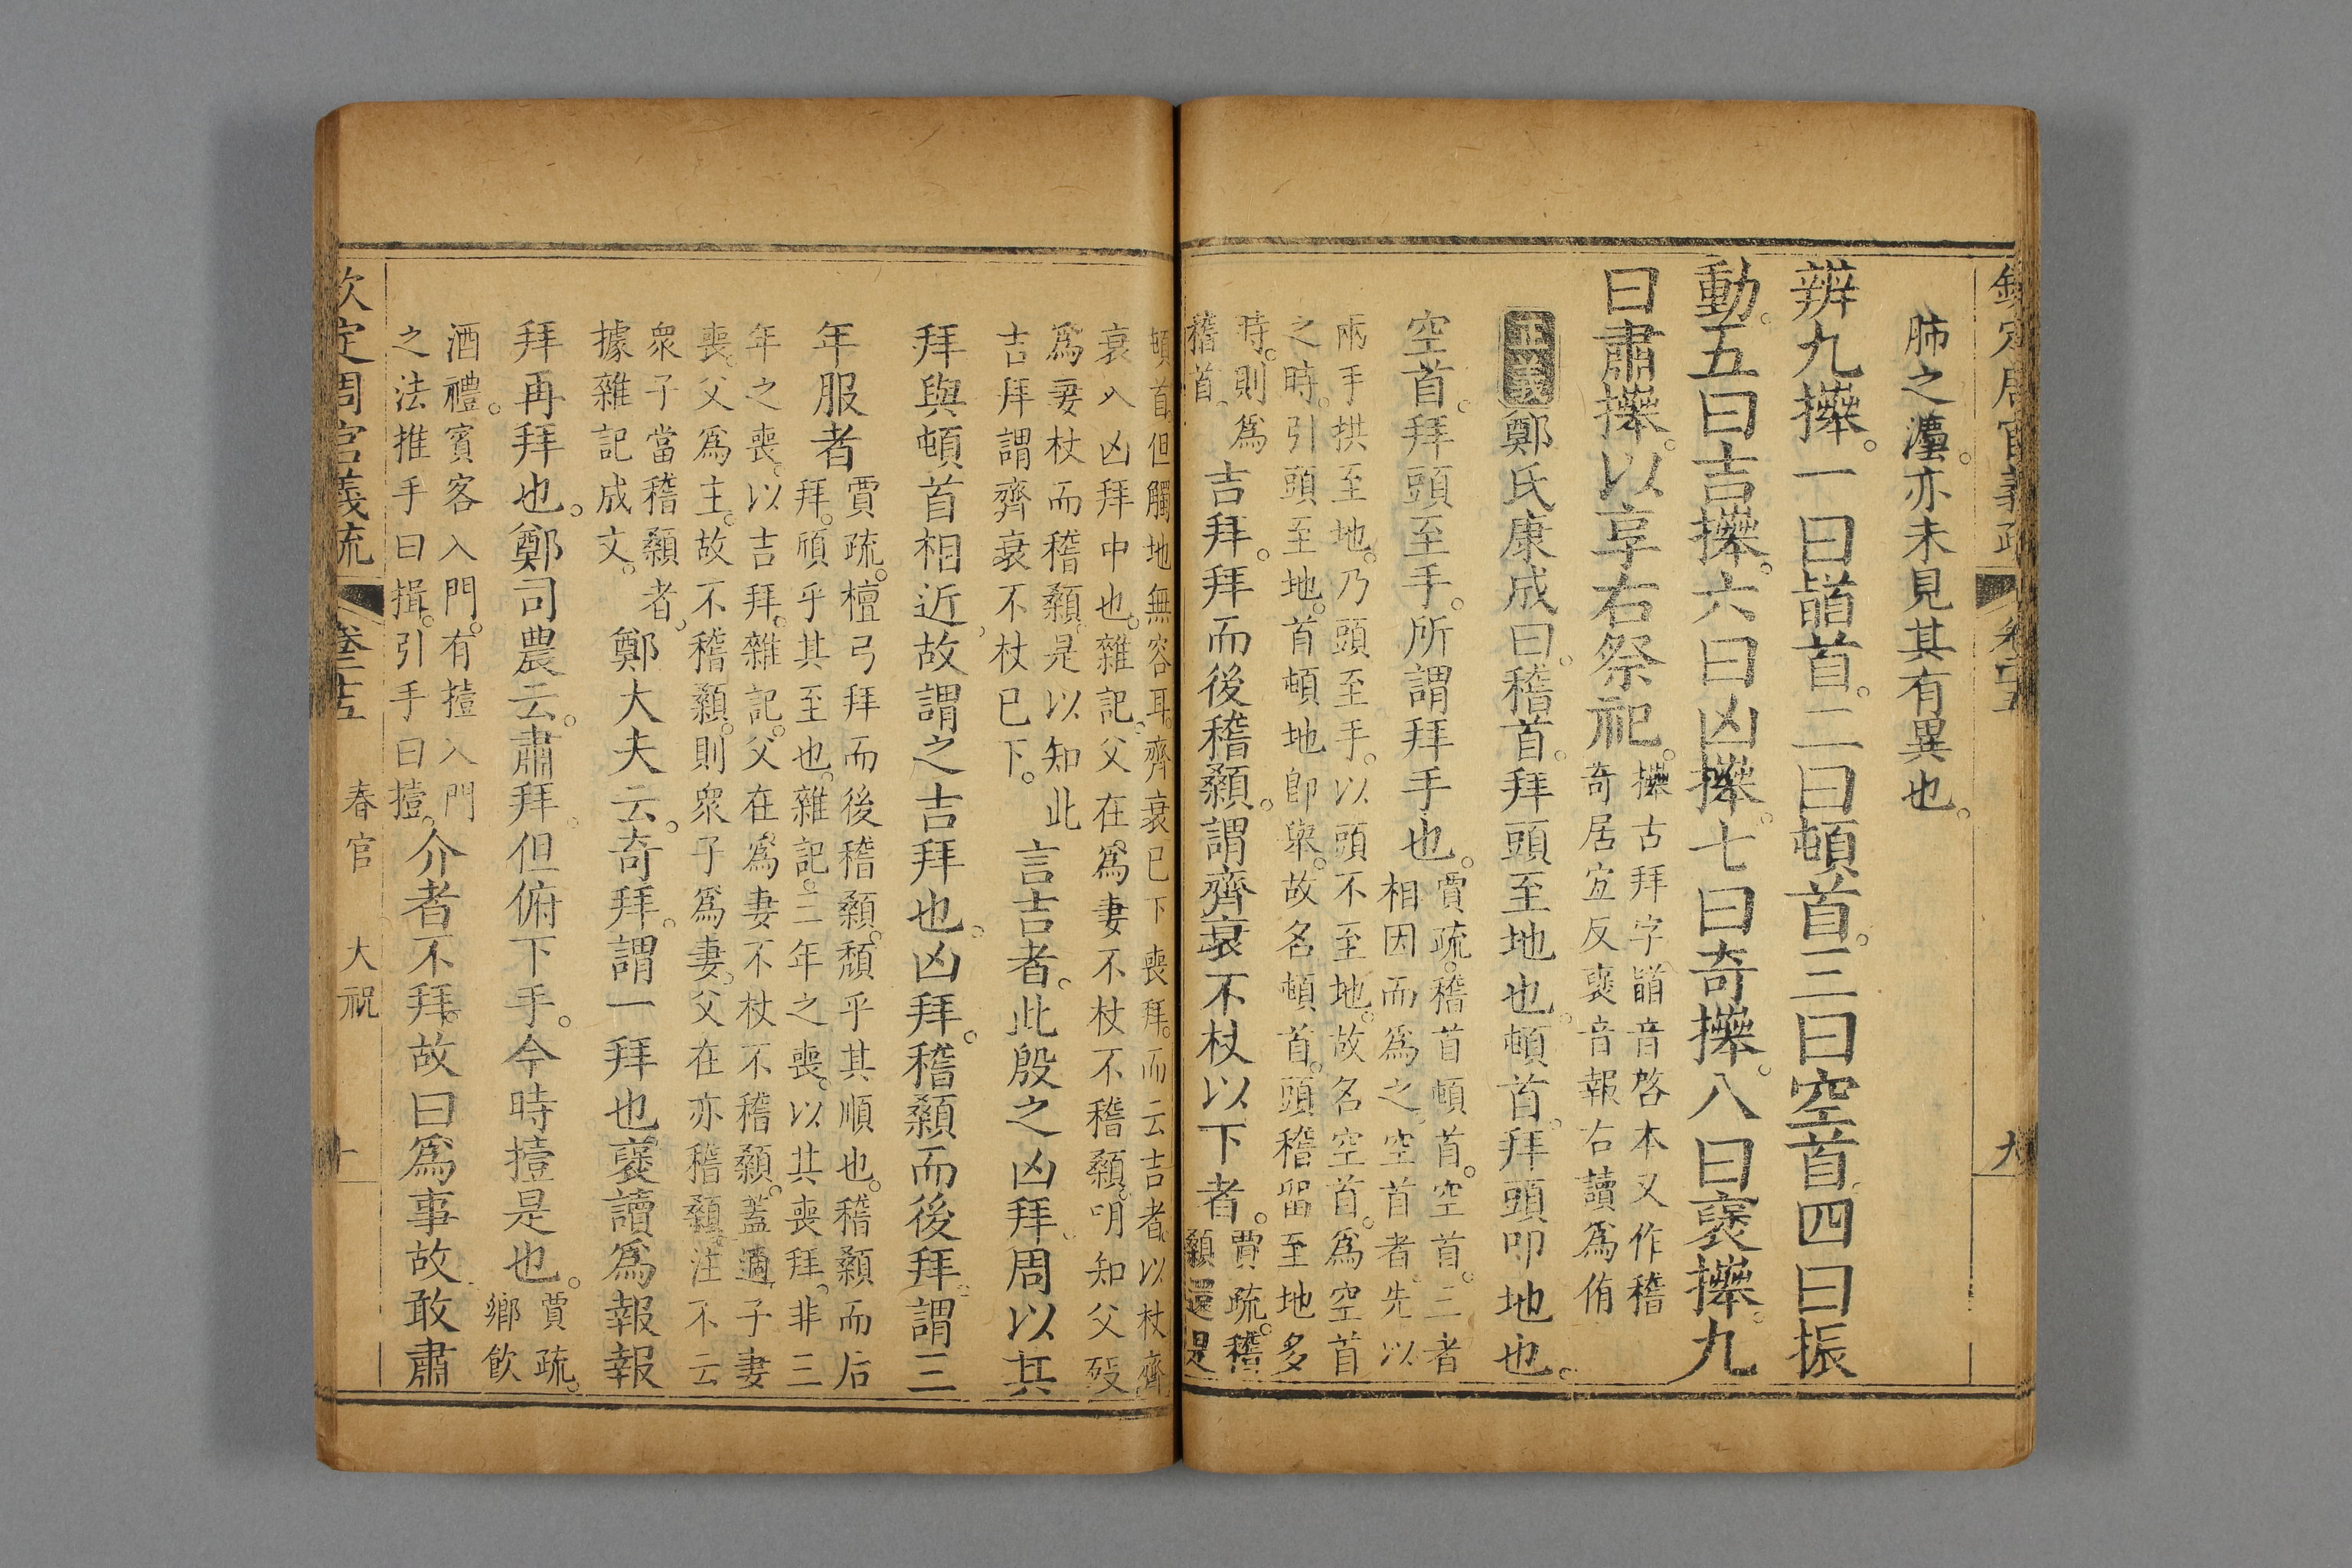 欽定周官義疏 卷二十五 九
肺之㵄亦未見其有異也。
辨九𢷎。一曰䭫首。二曰頓首。三曰空首。四曰振
動。五曰吉𢷎。六曰凶𢷎。七曰奇𢷎。八曰褒𢷎。九
曰肅𢷎。以享右祭祀。
𢷎古拜字䭫音啓本又作稽
奇居宜反襃音報右讀爲侑
正義鄭氏康成曰。稽首。拜頭至地也。頓首。拜頭叩地也。
空首。拜頭至手。所謂拜手也。
賈疏。稽首頓首。空首。三者
相因而爲之。空首者。先以
兩手拱至地。乃頭至手。以頭不至地。故名空首。爲空首
之時。引頭至地。首頓地卽舉。故名頓首。頭稽留至地多
時。則爲
稽首。
吉拜。拜而後稽顙。謂齊衰不杖以下者。
賈疏。稽
顙還是
頓首。但觸地無容耳。齊衰已下喪拜。而云吉者。以杖齊
衰入凶拜中也。雜記。父在爲妻不杖不稽顙。明知父歿
爲妻杖而稽顙。是以知此
吉拜謂齊衰不杖已下。
言吉者。此殷之凶拜。周以其
拜與頓首相近。故謂之吉拜也。凶拜。稽顙而後拜。謂三
年服者
賈疏。檀弓拜而後稽顙。頽乎其順也。稽顙而后
拜。頎乎其至也。雜記。三年之喪。以其喪拜。非三
年之喪。以吉拜。雜記。父在爲妻不杖不稽顙。蓋適子妻
喪。父爲主。故不稽顙。則衆子爲妻。父在亦稽顙。注不云
衆子當稽顙者。
據雜記成文。
鄭大夫云。奇拜。謂一拜也。襃讀爲報報
拜再拜也。鄭司農云。肅拜。但俯下手。今時撎是也。
賈疏。
鄕飮
酒禮。賓客入門。有撎入門
之法推手曰揖。引手曰撎。
介者不拜。故曰爲事故敢肅
欽定周官義疏 卷二十五 春官 大祝 十